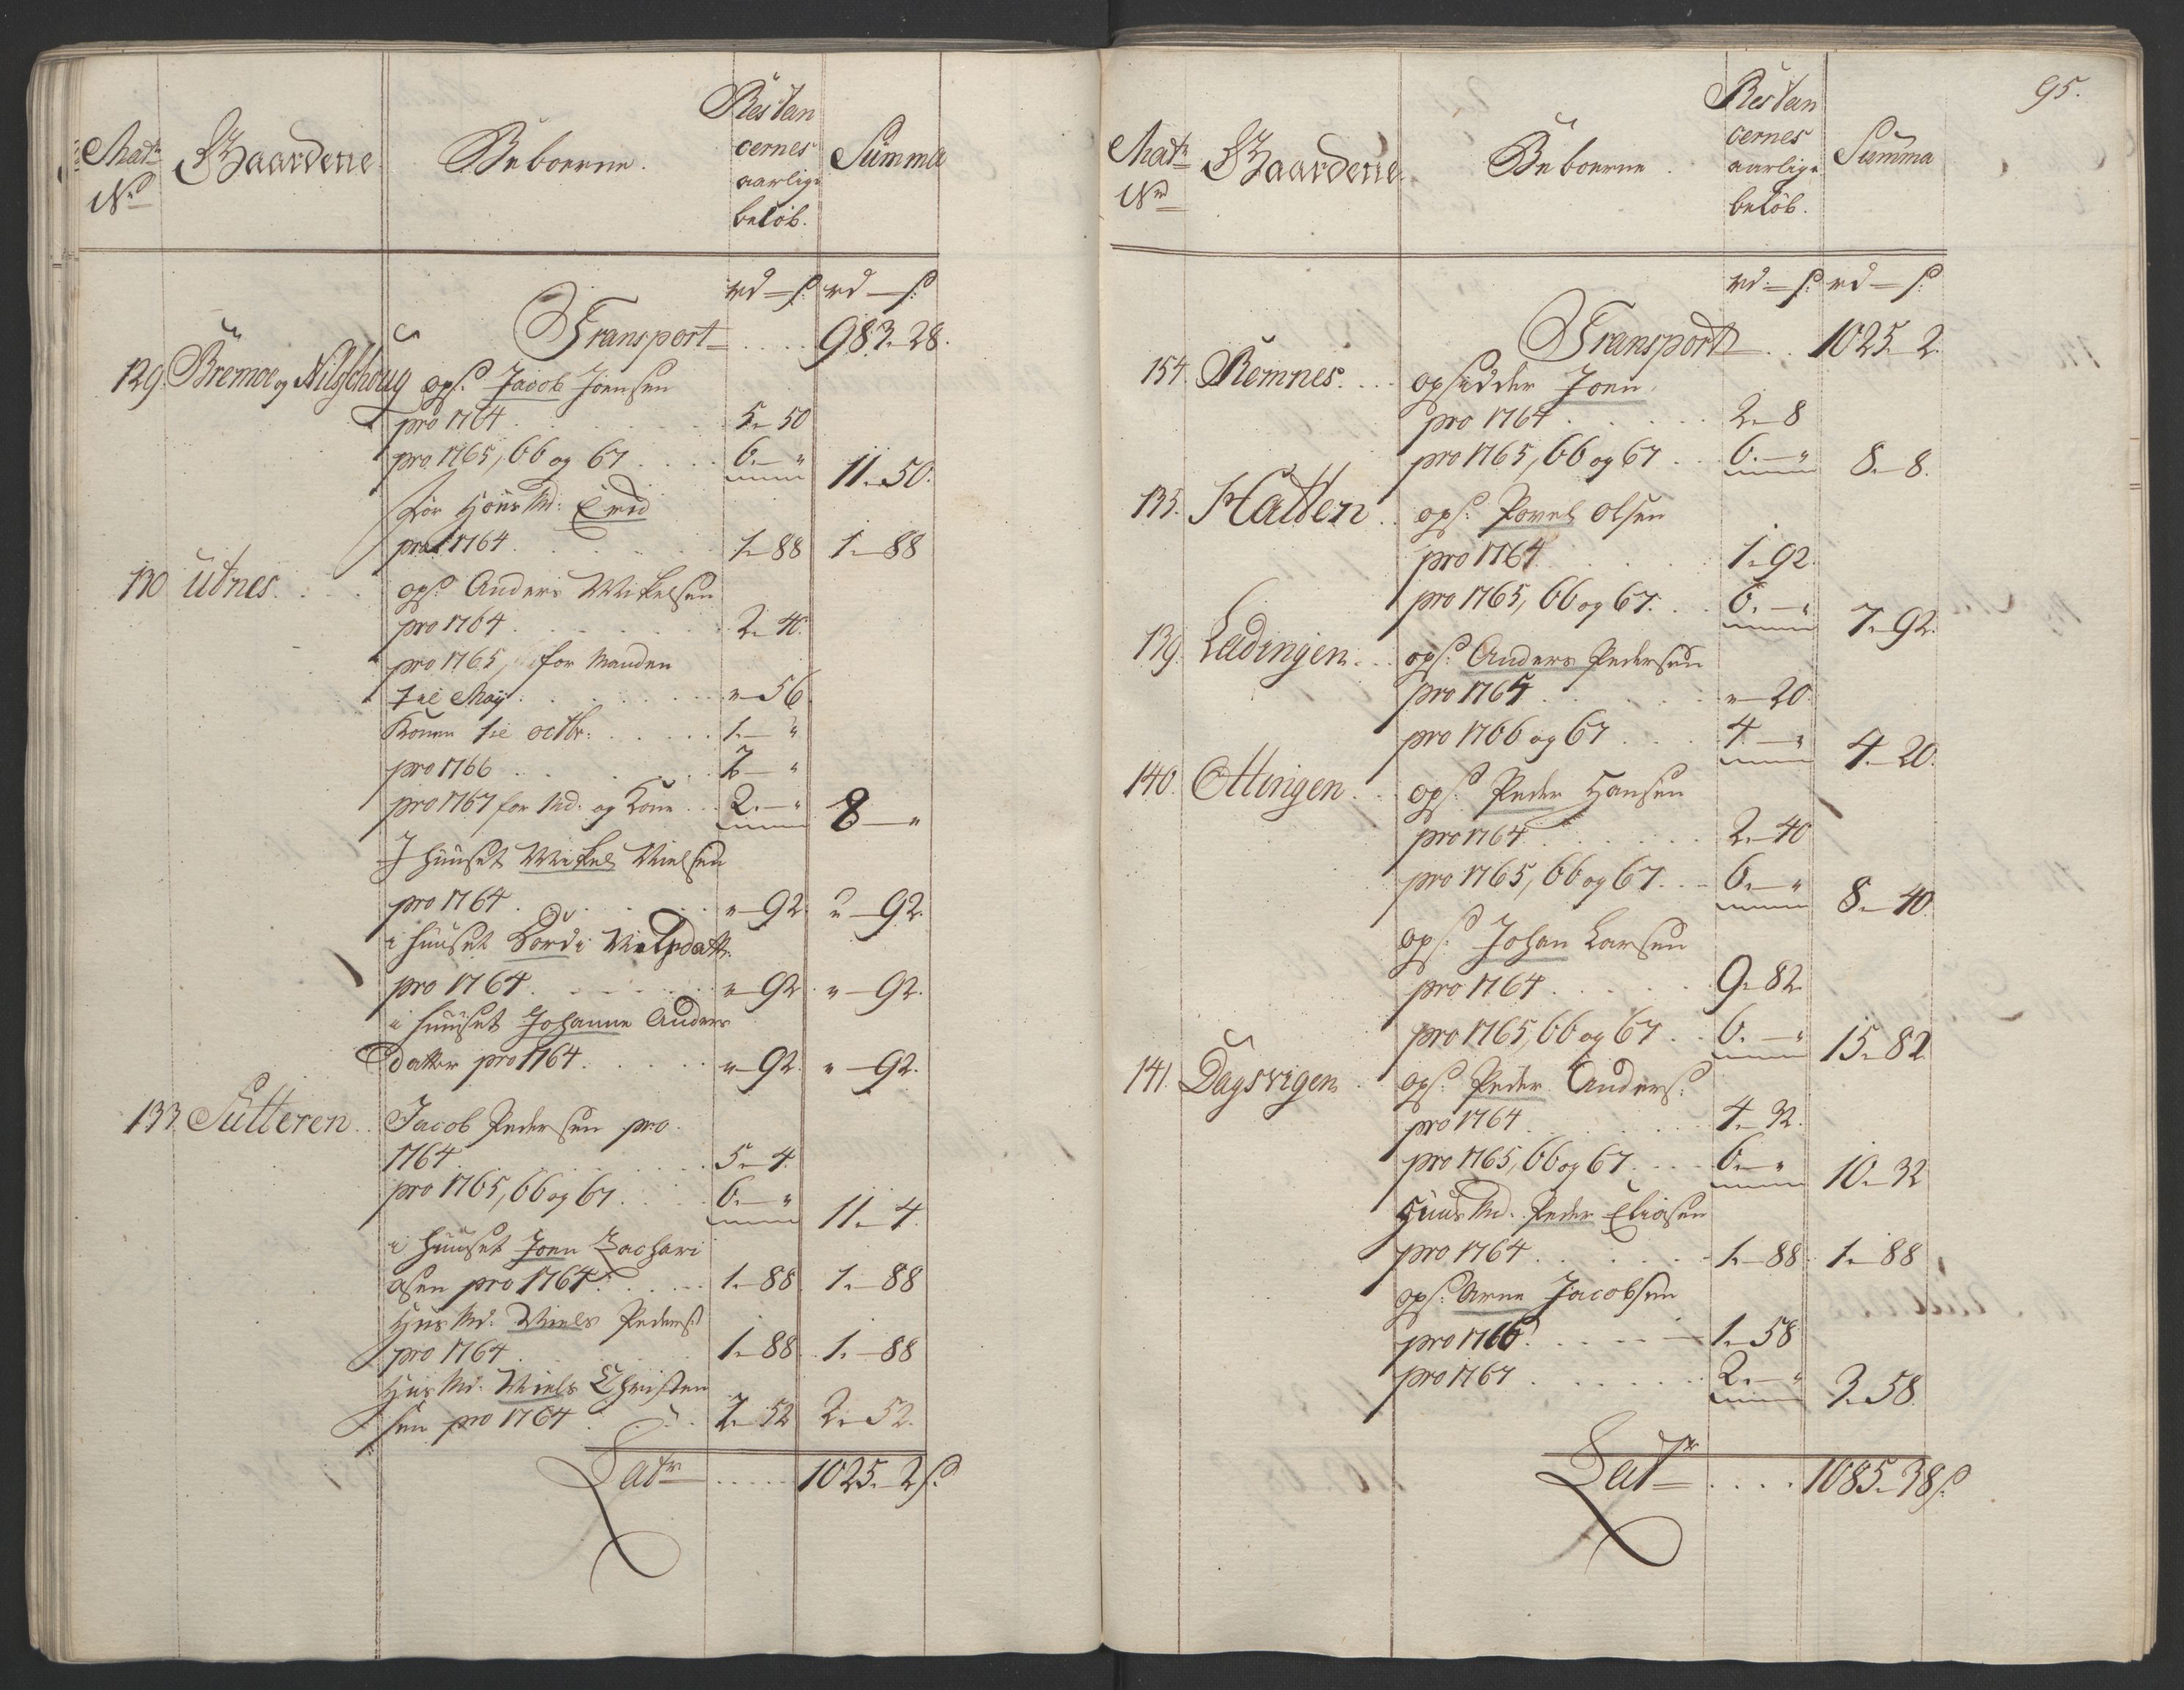 Matr No
Gaardene
Beboerne.
Restan
cernes
aarlige
beløb.
Summa
rd — s: rd — s:
Transport . . . . 983 - 28.
129. Bremoe og Nilschoug ops: Jacob Joensen
pro 1764 . . . 5 - 50
pro 1765, 66 og 67 . . . 6. — " 11. - 50.
for Huus Md:
pro 1764 . . . 1 - 88 1. - 88
130 Utnes . . . ops: Anders Mikelsen
pro 1764 . . . 2. - 40.
pro 1765, for Manden
til May . . . " - 56
Konen til octbr: . . . 1. — "
pro 1766 . . . 2 — "
pro 1767 for Md. og Kone . . 2. — " 8 — "
I huuset Mikel Nielsen
pro 1764 . . . " - 92 " - 92.
i huuset Bordi Nielsdatt.
pro 1764 . . . " - 92 " - 92.
i huuset Johanne Anders
datter pro 1764 . . . " - 92. " - 92.
133. Sutteren . . Jacob Pedersen pro
1764 . . . 5 - 4.
pro 1765, 66 og 67 . . . 6. — " 11. - 4.
i huuset Joen Zachari
asen pro 1764 . . . 1. - 88 1. - 88
Huus Md: Niels Peders:
pro 1764 . . . 1. - 88 1. - 88
Huus Md. Niels Christen
sen pro 1764 . . . 2. - 52 2. - 52.
Latr . . . . . 1025. - 2 s:
95.
Matr No
Gaardene
Beboerne.
Restan
cernes
aarlige
beløb.
Summa
rd. — s: rd — s:
Transport . . . 1025. - 2.
154. Remnes . . . opsidder Joen
pro 1764 . . . 2. - 8
pro 1765, 66 og 67 . . 6. — " 8. - 8.
135. Hatten . . ops: Povel Olsen
pro 1764 . . . 1. - 92.
pro 1765, 66 og 67. . . 6. — " 7. - 92.
139. Lædingen . . . ops: Anders Pedersen
pro 1765 . . . " - 20.
pro 1766 og 67 . . . 4. — " 4. - 20.
140. Ottingen . . . ops: Peder Hansen
pro 1764 . . . 2. - 40
pro 1765, 66 og 67. . . 6. — " 8. - 40.
ops: Johan Larsen
pro 1764 . . . 9. - 82.
pro 1765, 66 og 67 . . 6. — " 15. - 82
141. Dagsvigen . ops: Peder Anders:
pro 1764 . . . 4. - 32.
pro 1765, 66 og 67. . . 6. — " 10. - 32
Huus Md. Peder Eliasen
pro 1764 . . . 1. - 88. 1. - 88
ops: Arne Jacobsen
pro 1766 . . . 1. - 58
pro 1767 . . . 2. — " 3. - 58.
Latr . . . . 1085. - 38 s: